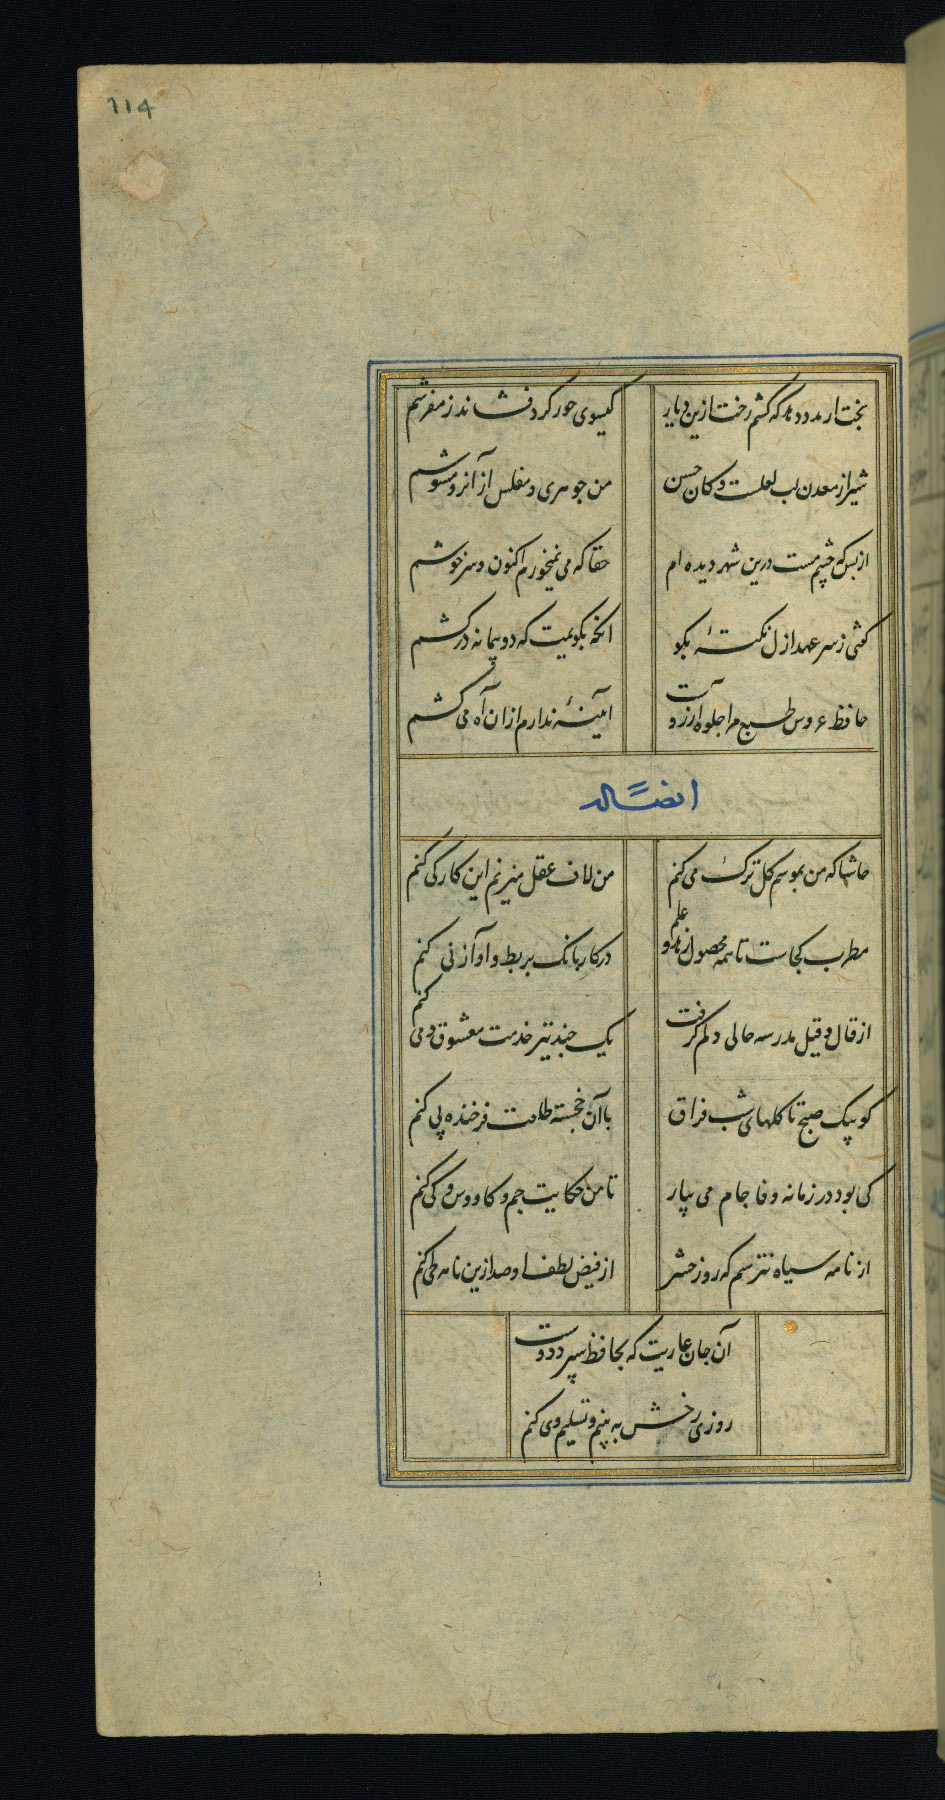 114
بخت ار مدد دهد که کشم رخت ازین دیار
کیسوی حور کرد فشاند ز مفرشم
شیراز معدن لب لعلست و کان حسن
من جوهری و مفلس از آنرو مشوشم
از بس که چشم مست درین شهر دیده ام
حقا که می نمیخورم اکنون و سرخوشم
کفتی ز سر عهد ازل نکتهٔ بکو
انکه بکویمت که دو پیمانه درکشم
حافظ عروس طبع مرا جلوه آرزوست
آیینهٔ ندارم از ان آه می کشم
ایضاً له
حاشا که من بموسم کل ترک می کنم
من لاف عقل میزنم این کار کی کنم
مطرب کجاست تا همه محصول زهد و علم
در کار بانک بربط و آواز نی کنم
از قال و قیل مدرسه حالی دلم کرفت
یک چند نیز خدمت معشوق و می کنم
کو پیک صبح تا کلهای شب فراق
با آن خجسته طلعت فرخنده پی کنم
کی بود در زمانه وفا جام می بیار
تا من حکایت جم و کاووس و کی کنم
از نامه سیاه نترسم که روز حشر
از فیض لطف او صد ازین نامه طی کنم
آن جان عاریت که بحافظ سپرد دوست
روزی رخش به بینم و تسلیم وی کنم